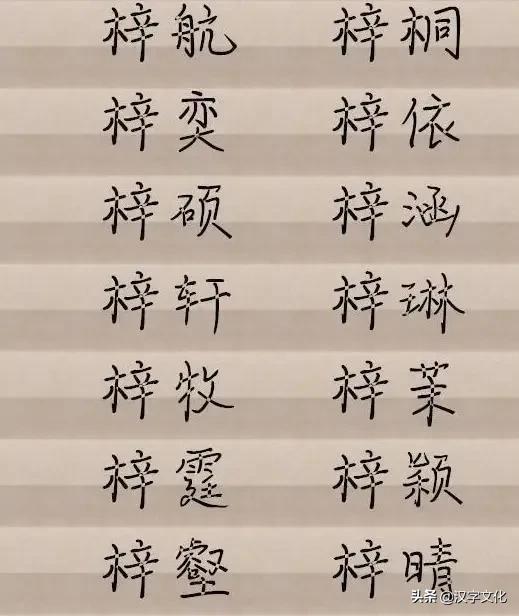 梓航 梓桐
梓奕 梓依
梓硕 梓涵
梓轩 梓琳
梓牧 梓茉
梓霆 梓颍
梓壑 梓晴
头条 @汉字文化